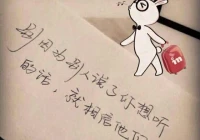 别因为别人说了你想听
的话，就相信他了
in